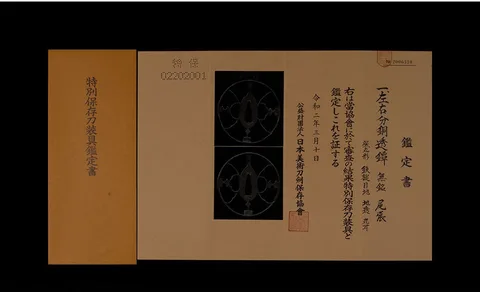 特別保存刀装具鑑定書
02202001
鑑定書
一左右分銅透鐔 無銘 尾張
鉄槌目地 地透 丸耳
右は當協會に於て審査の結果特別保存刀装具と
鑑定しこれを証する
令和二年三月十日
公益財団法人日本美術刀剣保存協會